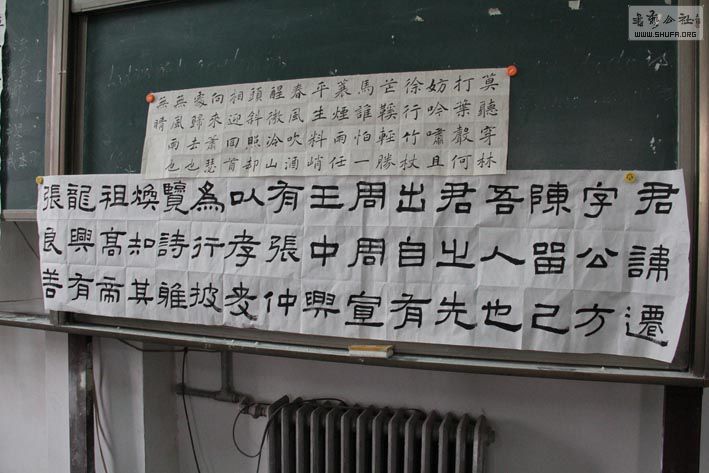 書藝公社
WWW.SHUFA.ORG
莫聽穿林
打葉聲何
妨吟嘯且
徐行竹杖
芒鞵輕勝
馬誰怕一
蓑煙雨任
平生料峭
春風吹酒
醒微冷山
頭斜照却
相迎回首
向來蕭瑟
處歸去也
無風雨也
無晴
君諱遷
字公方
陳留己
吾人也
君之先
出自有
周周宣
王中興
有張仲
以孝友
為行披
覽詩雅
煥知其
祖高帝
龍興有
張良善